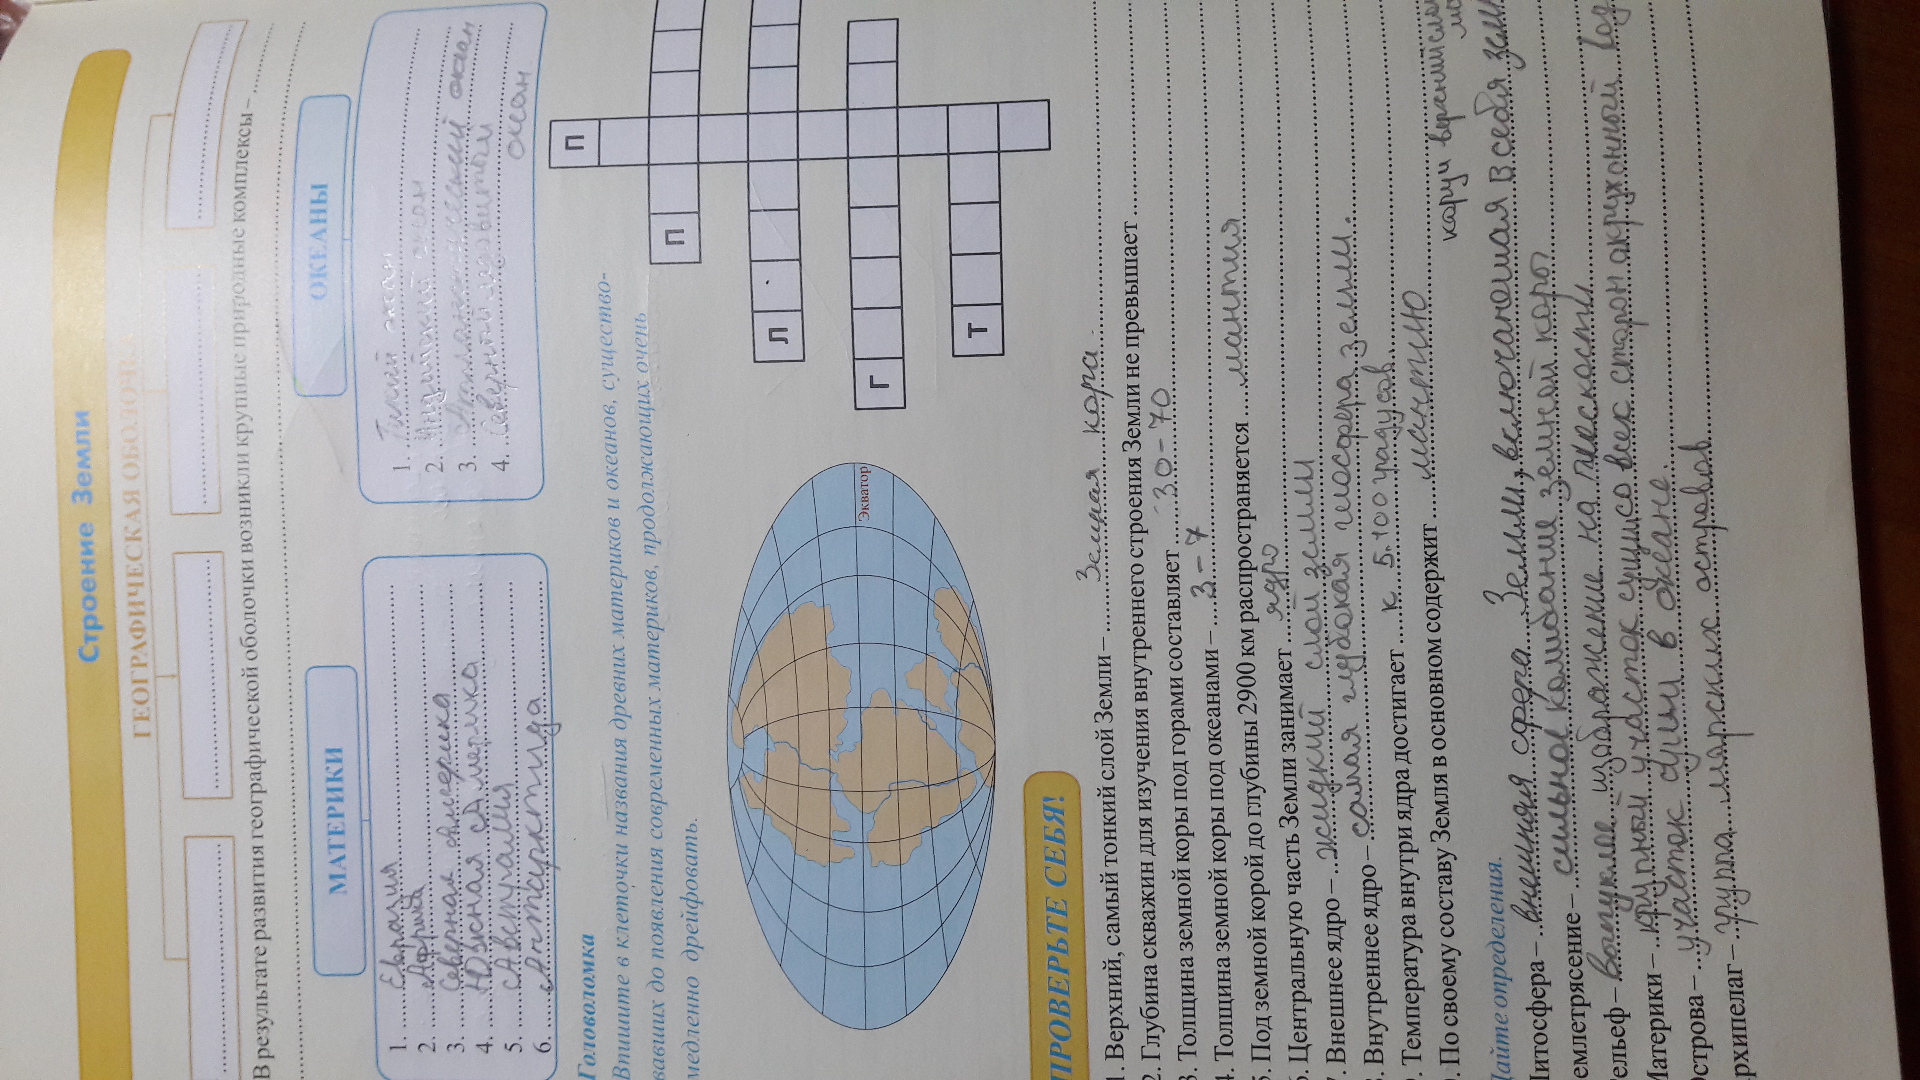 Строение Земли
ГЕОГРАФИЧЕСКАЯ ОБОЛОЧ
В результате развития географической оболочки возникли крупные природные комплексы –
МАТЕРИКИ
1. Евразия
2. Африка
3. Северная Америка
4. Южная Америка
5. Австралия
6. Антарктида
ОКЕАНЫ
1. Тихий океан
2. Индийский океан
3. Атлантический океан
4. Северный ледовитый
океан
Головоломка
Впишите в клеточки названия древних материков и океанов, существо-
вавших до появления современных материков, продолжающих очень
медленно дрейфовать.
Экватор
П
П
Л
Г
Т
ПРОВЕРЬТЕ СЕБЯ!
1. Верхний, самый тонкий слой Земли – Земная кора
2. Глубина скважин для изучения внутреннего строения Земли не превышает
3. Толщина земной коры под горами составляет 30-70
4. Толщина земной коры под океанами – 3-7
5. Под земной корой до глубины 2900 км распространяется мантия
6. Центральную часть Земли занимает ядро
7. Внешнее ядро – жидкий слой земли
8. Внутреннее ядро – самая глубокая геосфера земли.
9. Температура внутри ядра достигает к 5.100 градусов
0. По своему составу Земля в основном содержит мантию
Дайте определения.
Литосфера – внешняя сфера Земли, включающая в себя
землетрясение – сильное колебание земной коры
Рельеф – выпуклое изображение на плоскости
Материки – крупный участок суши со всех сторон
Острова – участок суши в океане.
Архипелаг – группа морских островов